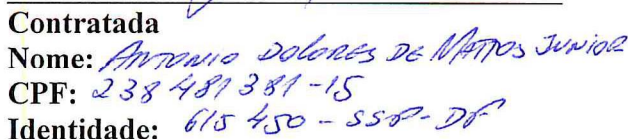 Contratada
Nome: Antonio Dolores De Mattos Junior
CPF: 238 481 381-15
Identidade: 615 450 - SSP - DF